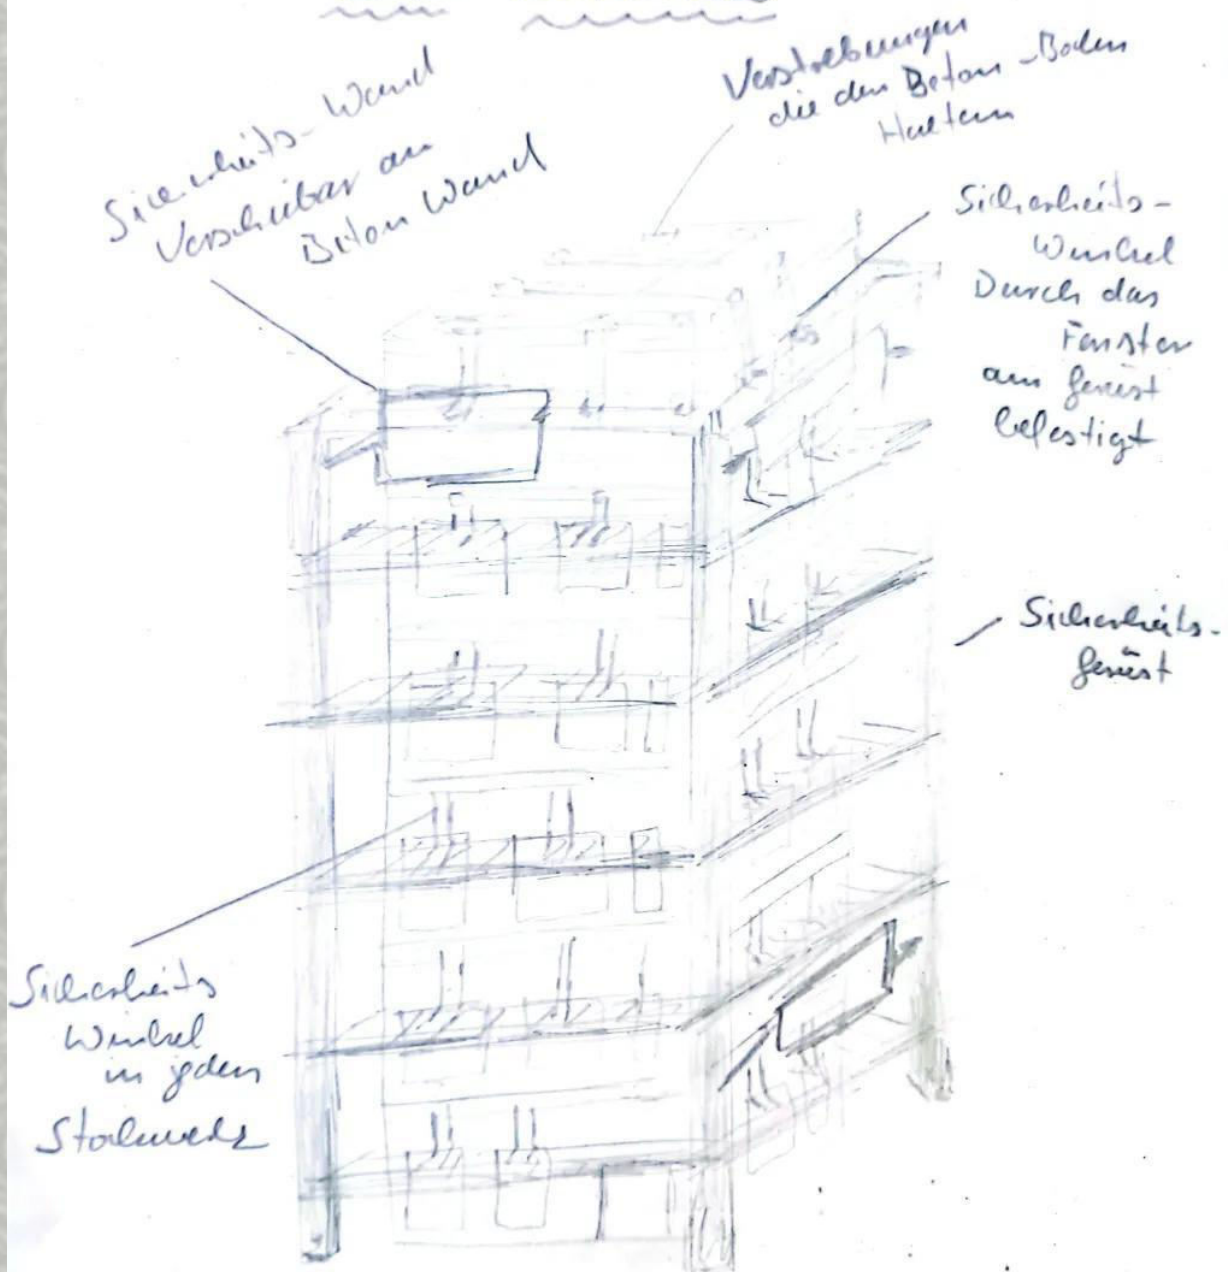 Sicherheits-Wand
Verschiebar an
Beton Wand
Verstrebungen
die den Beton-Boden
Halten
Sicherheits-
Winkel
Durch das
Fenster
am Gerüst
befestigt
Sicherheits-
gerüst
Sicherheits
Winkel
in jedem
Stockwerk